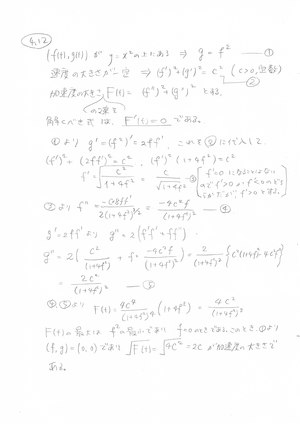 4.12
(f(t), g(t)) が y=x² の上にある ⇒ g = f² —①
速度の大きさが一定 ⇒ (f')²+(g')² = c² (c>0, 定数) —②
加速度の大きさ F(t) = (f'')² + (g'')² とする。
の2乗を
解くべき式は、F'(t) = 0 である。
①より g' = (f²)' = 2ff' これを②に代入して、
(f')² + (2ff')² = c² , (f')²(1+4f²) = c²
f' = √(c²/(1+4f²)) = c/√(1+4f²) —③
③より f'' = = -4c²f/(1+4f²)² —④
g' = 2ff' より g'' = 2(f'f' + ff'')
g'' = 2( c²/(1+4f²) + f· -4c²f/(1+4f²)² ) = 2/(1+4f²)² { c²(1+4f²) - 4c²f² }
= 2c²/(1+4f²)² —⑤
④⑤より F(t) = 4c⁴/(1+4f²)⁴ (1+4f²) = 4c⁴/(1+4f²)³
F(t) の最大は f² の最小であり f=0 のときである。このとき、①より
(f, g) = (0, 0) であり √F(t) = = 2c が加速度の大きさで
ある。